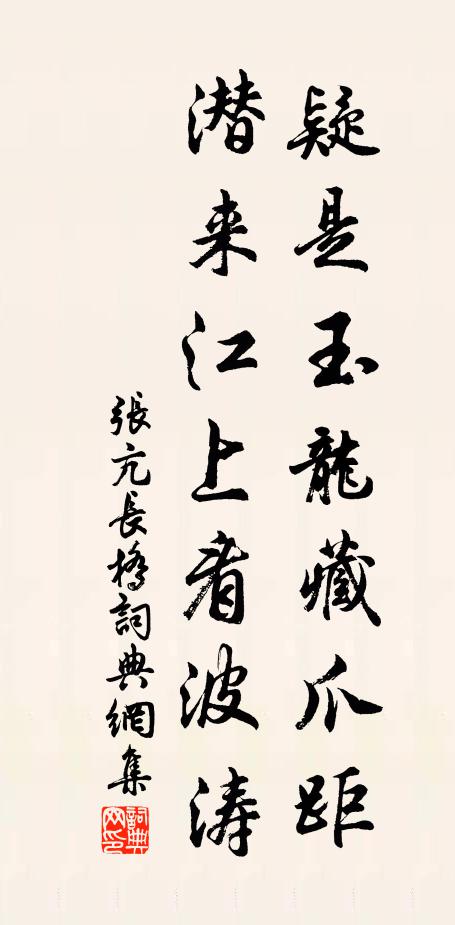 疑是玉龍藏爪距
潜来江上看波涛
張亢長橋詞典網集
詞典网印